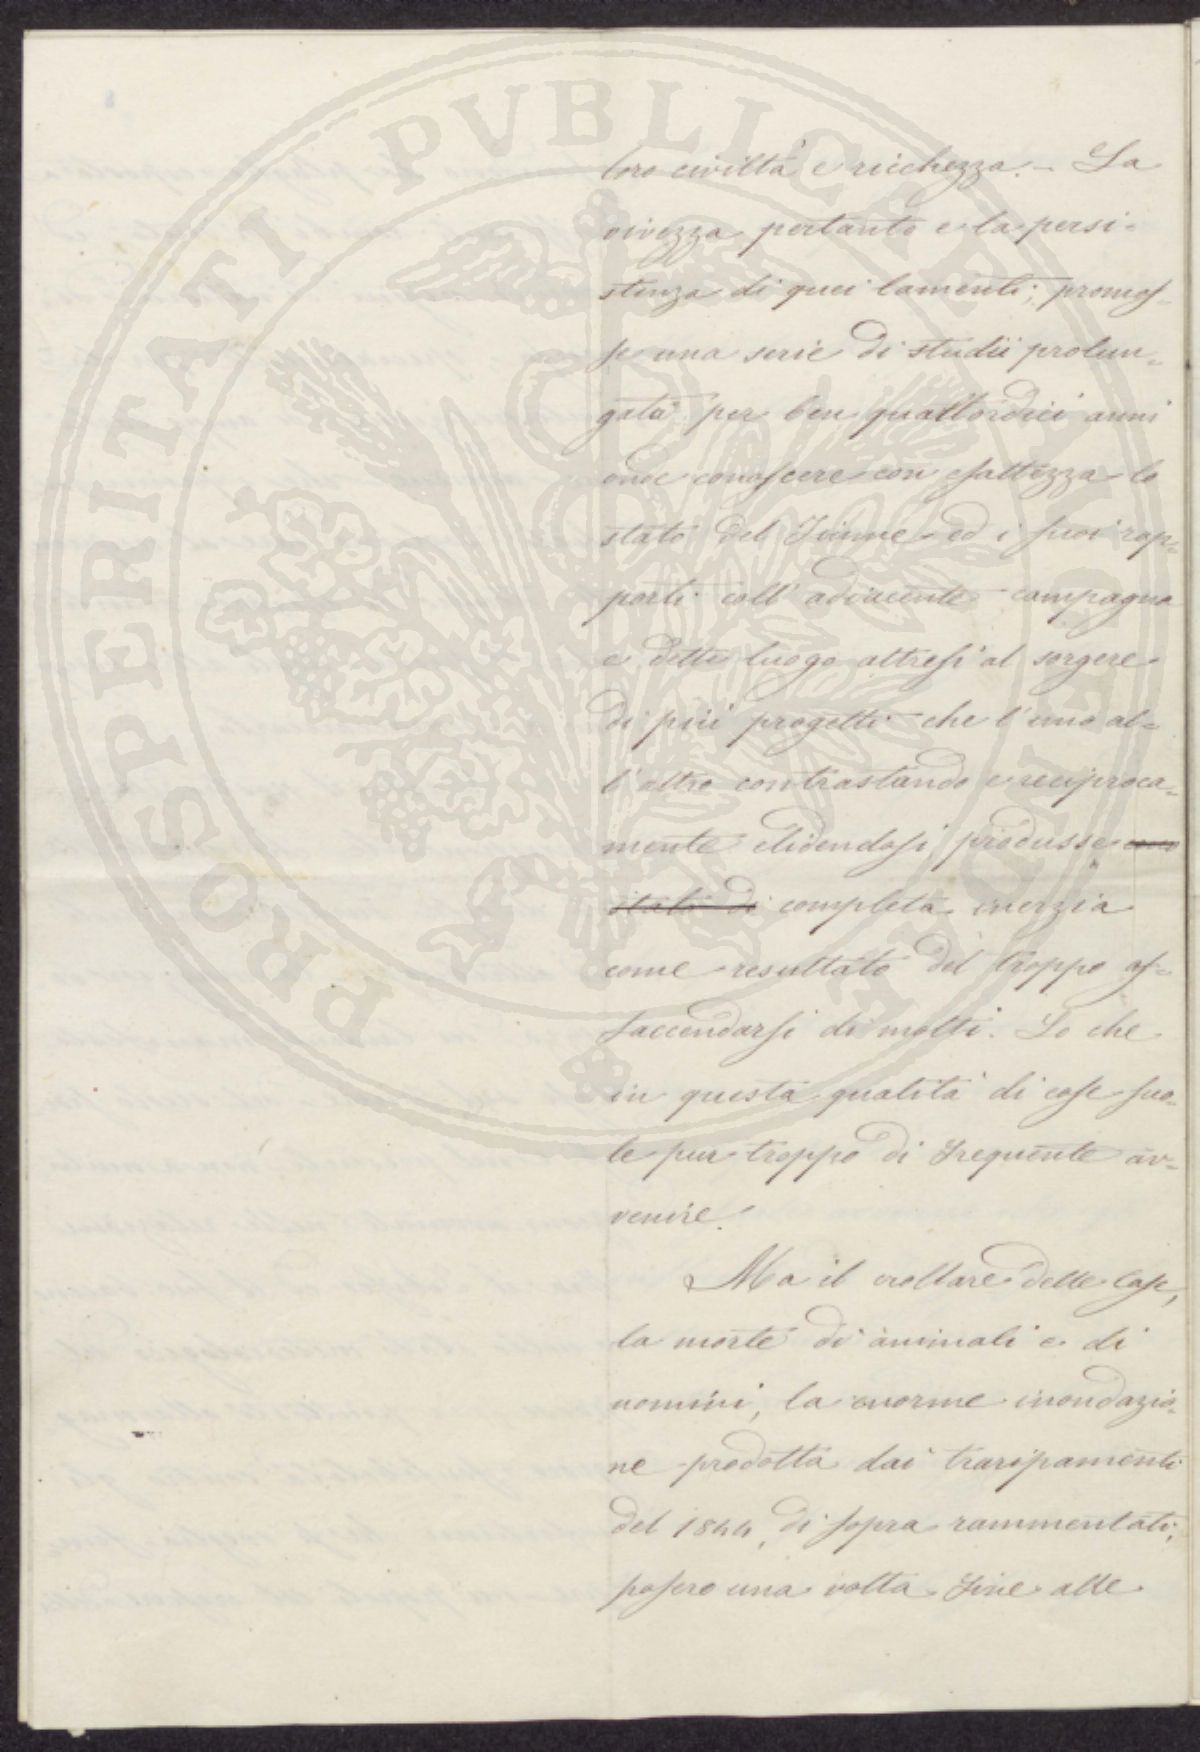 PROSPERITATI PVBLICAE AVGENDAE
loro civiltà e ricchezza. – La
vivezza pertanto e la persi-
stenza di quei lamenti, promos-
se una serie di studii prolun-
gata per ben quattordici anni
onde conoscere con esattezza lo
stato del Fiume ed i suoi rap-
porti coll' adiacente campagna
e dette luogo altresì al sorgere
di più progetti che l'uno al-
l'altro contrastando e reciproca-
mente elidendosi produsse
stato di completa inerzia
come resultato del troppo af-
faccendarsi di molti. Lo che
in questa qualità di cose suo-
le pur troppo di frequente av-
venire.
Ma il crollare delle Case,
la morte di animali e di
uomini, la enorme inondazio-
ne prodotta dai traripamenti
del 1844, di sopra rammentati,
posero una volta fine alle